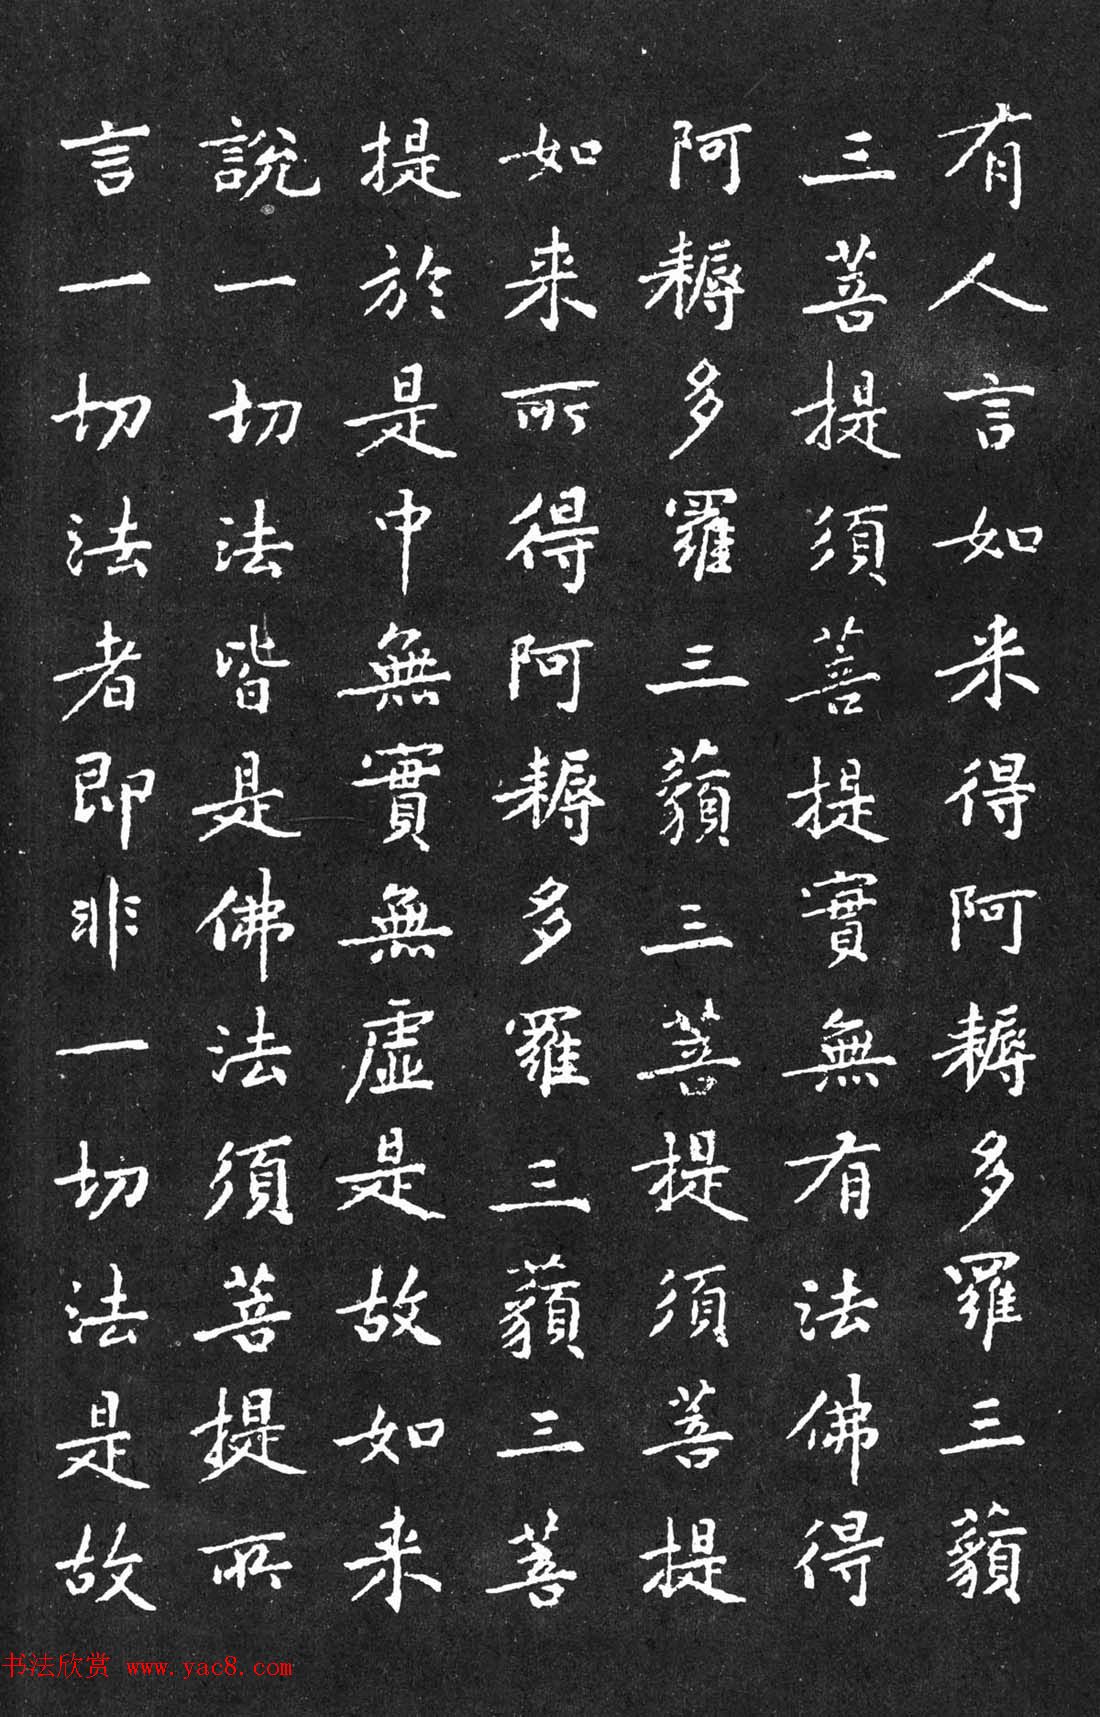 有人言如来得阿耨多羅三藐
三菩提須菩提實無有法佛得
阿耨多羅三藐三菩提須菩提
如来所得阿耨多羅三藐三菩
提於是中無實無虛是故如来
說一切法皆是佛法須菩提所
言一切法者即非一切法是故
书法欣赏 www.yac8.com